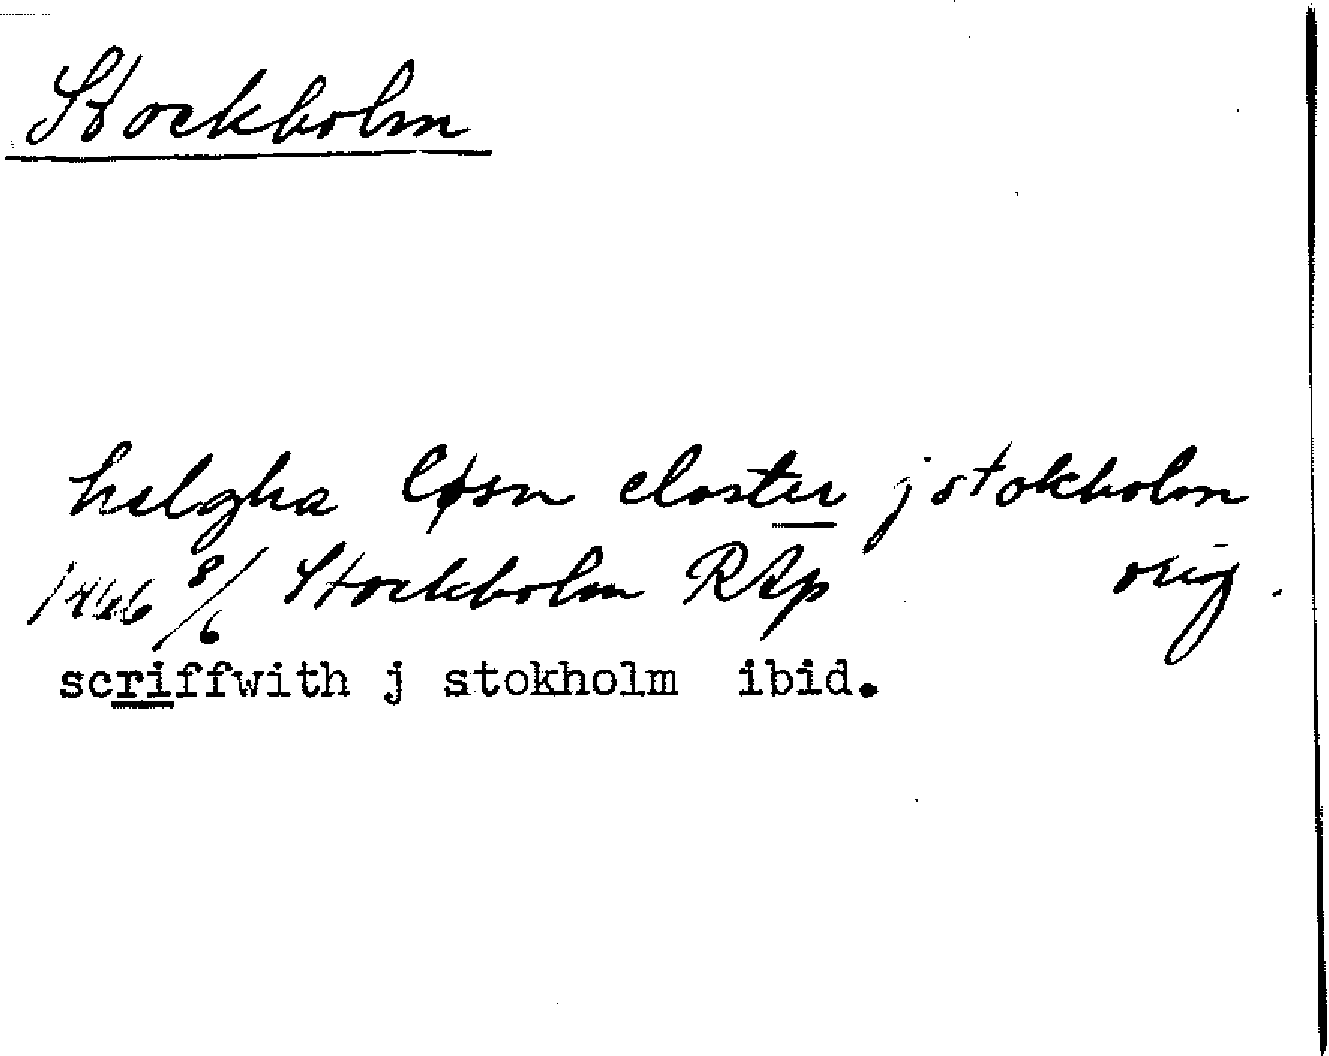 Stockholm
helgha løsn closter j stokholm
1446 8/6 Stockholm RAp orig.
scriffwith j stokholm ibid.